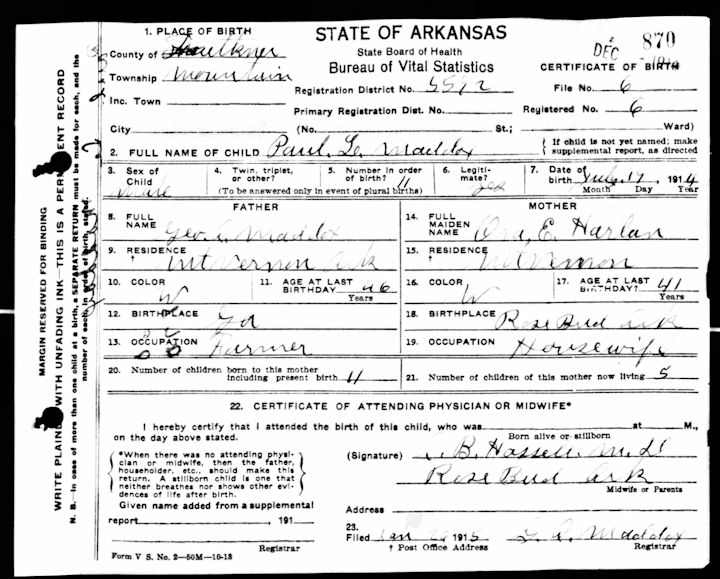 STATE OF ARKANSAS
State Board of Health
Bureau of Vital Statistics
DEC 870
CERTIFICATE OF BIRTH
1. PLACE OF BIRTH
County of Faulkner
Township Mountain
Inc. Town
City (No. St.; Ward)
Registration District No.
File No. 6
Primary Registration Dist. No.
Registered No. 6
{ If child is not yet named; make supplemental report, as directed
2. FULL NAME OF CHILD Paul Maddox
3. Sex of Child
4. Twin, triplet, or other?
5. Number in order of birth? 11
(To be answered only in event of plural births)
6. Legiti- mate? yes
7. Date of birth 17, 1914
Month Day Year
FATHER
8. FULL NAME Geo. Maddox
9. RESIDENCE † Mt Vernon Ark
10. COLOR W
11. AGE AT LAST BIRTHDAY 46
Years
12. BIRTHPLACE Ga
13. OCCUPATION Farmer
MOTHER
14. FULL MAIDEN NAME Ora, E. Harlan
15. RESIDENCE † Mt Vernon
16. COLOR W
17. AGE AT LAST BIRTHDAY? 41
Years
18. BIRTHPLACE Rose Bud Ark
19. OCCUPATION Housewife
20. Number of children born to this mother including present birth 11
21. Number of children of this mother now living 5
22. CERTIFICATE OF ATTENDING PHYSICIAN OR MIDWIFE*
I hereby certify that I attended the birth of this child, who was at M.,
on the day above stated. Born alive or stillborn
{ *When there was no attending physi-
cian or midwife, then the father,
householder, etc., should make this
return. A stillborn child is one that
neither breathes nor shows other evi-
dences of life after birth. }
(Signature) B. Hassell M. D.
Rose Bud Ark
Midwife or Parents
Given name added from a supplemental
report , 191
Registrar
Address
23.
Filed Jan 1915 G. A. Maddox
† Post Office Address Registrar
Form V S. No. 2—50M—10-13
MARGIN RESERVED FOR BINDING
WRITE PLAINLY WITH UNFADING INK—THIS IS A PERMANENT RECORD
N. B.—In case of more than one child at a birth, a SEPARATE RETURN must be made for each, and the
number of each, in order of birth, stated.